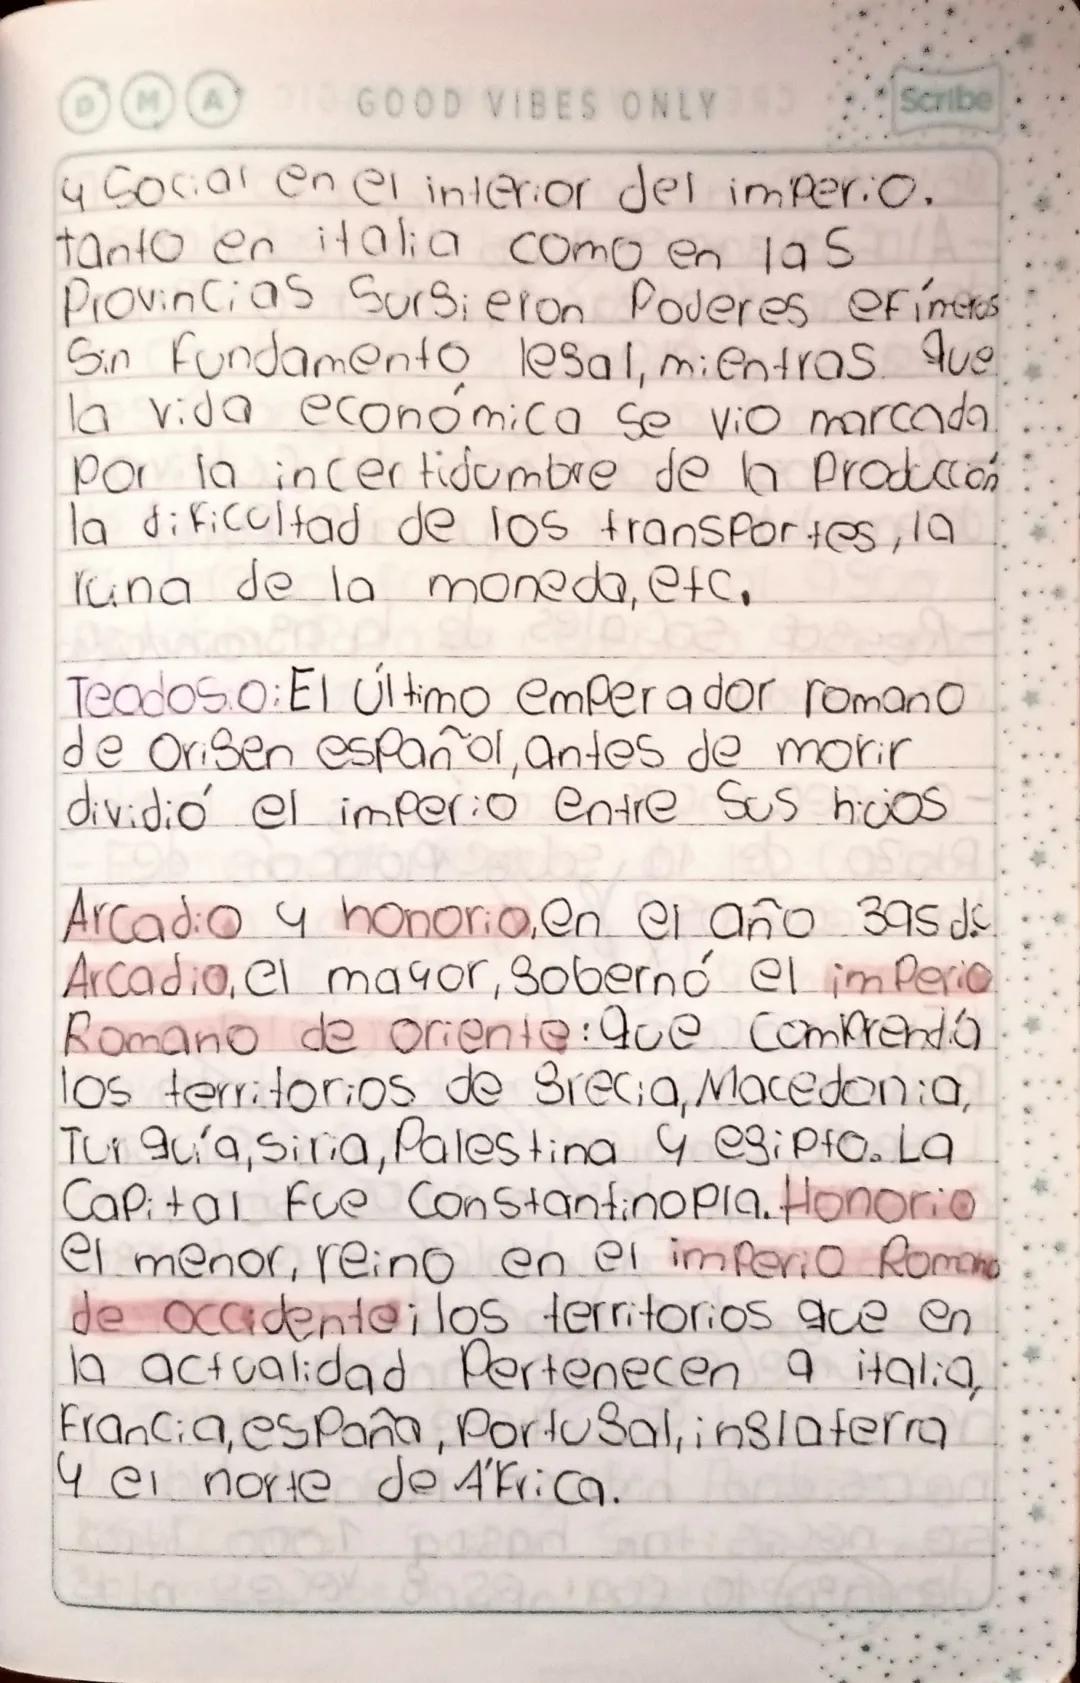 D M A GOOD VIBES ONLY Scribe
y Social en el interior del imperio.
tanto en italia como en las
Provincias Surgieron Poderes efímeros
Sin fundamento legal, mientras que
la vida económica se vio marcada
por la incertidumbre de la Producción
la dificultad de los transportes, la
ruina de la moneda, etc.
Teodosio: El Último emperador romano
de origen español, antes de morir
dividió el imperio entre Sus hijos
Arcadio y honorio, en el año 395 dc
Arcadio, el mayor, gobernó el imperio
Romano de oriente: que Comprendía
los territorios de grecia, Macedonia,
Turquía, Siria, Palestina y egipto. La
Capital Fue Constantinopla. Honorio
el menor, reino en el imperio Romano
de occidente; los territorios que en
la actualidad Pertenecen a italia,
Francia, españa, Portugal, inglaterra
y el norte de África.